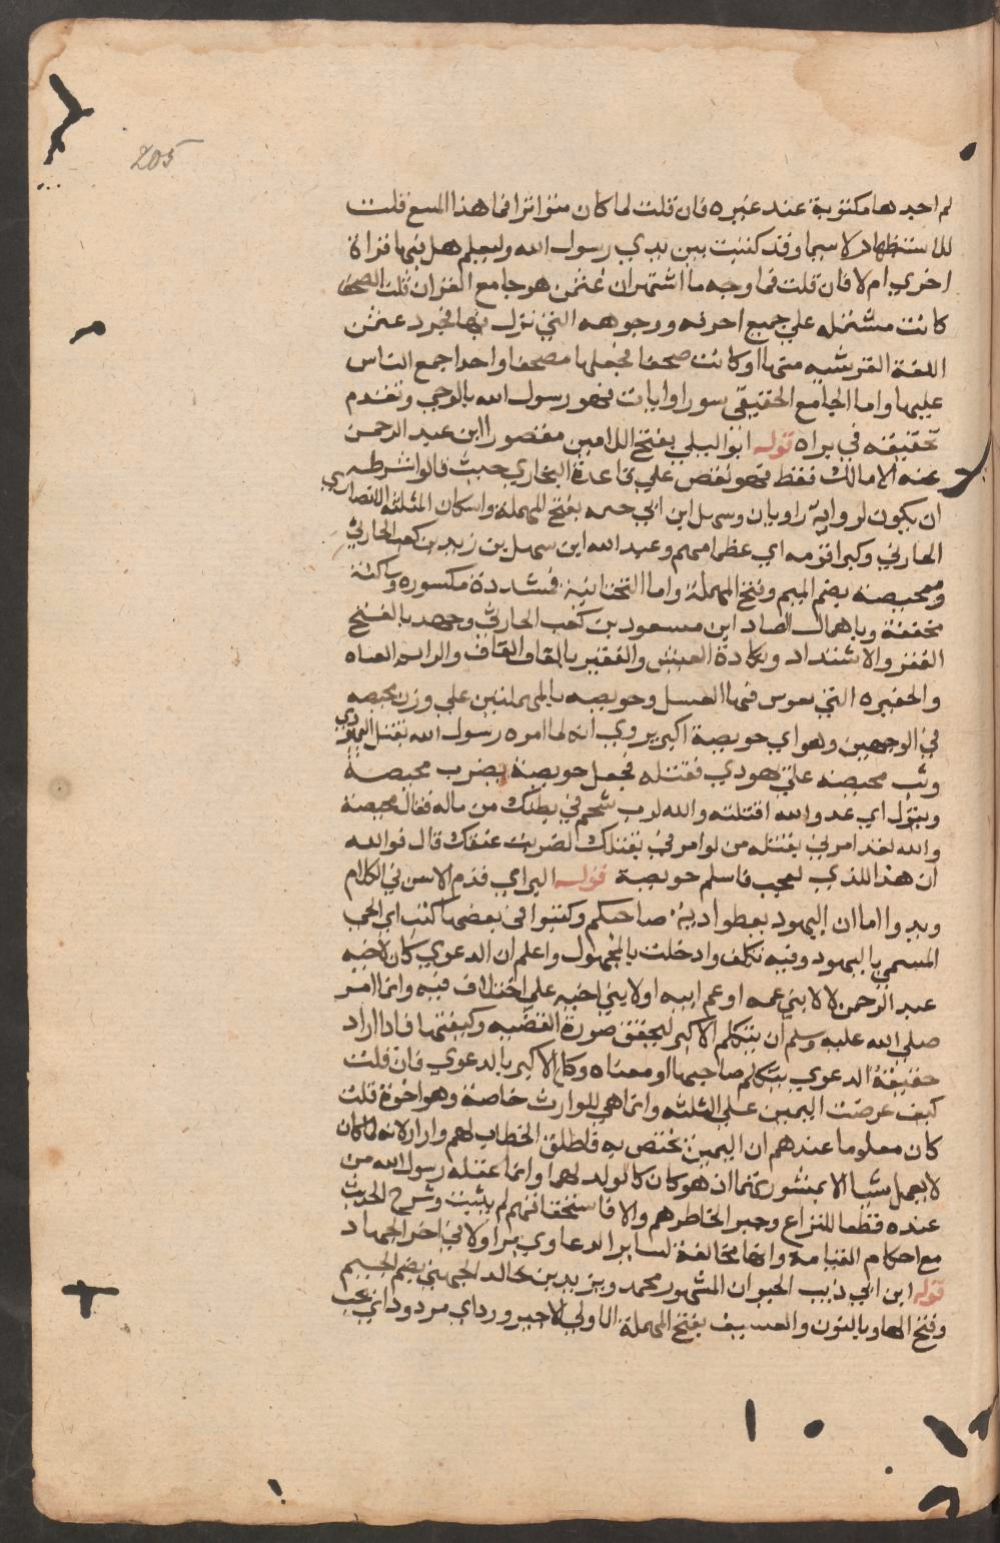 205
لم اجدها مكتوبة عند غيره فان قلت لما كان متواترا فما هذا التتبع قلت
للاستظهار لاسيما وقد كتبت بين يدي رسول الله وليعلم هل فيها قراة
اخري ام لا فان قلت فما وجه ما اشتهر ان عثمن هو جامع القران قلت الصحف
كانت مشتمله علي جميع احرفه ووجوهه التي نزل بها فجرد عثمن
اللغة القرشيه منها او كانت صحفا فجعلها مصحفا واحدا جمع الناس
عليها واما الجامع الحقيقي سورا وايات فهو رسول الله بالوحي وتقدم
تحقيقه في براه قوله ابو اليلي بفتح اللامين مقصورا ابن عبد الرحمن
عنه الا مالك فقط فهو نقض علي قاعدة البخاري حيث قالوا شرطه
ان يكون لروايه راويان وسهل ابن ابي حثمه بفتح المهملة واسكان المثلثه الانصاري
الحارثي وكبرا قومه اي عظماهم وعبد الله ابن سهل بن زيد بن كعب الحارثي
ومحيصه بضم الميم وفتح المهملة واما التحتانية فمشددة مكسوره وساكنة
مخففة وباهمال الصاد ابن مسعود بن كعب الحارثي وجهد بالفتح
الفقر والاشتداد ونكادة العيش والفقير بالفاء والقاف والراء فم القناه
والحفيره التي يغرس فيها الفسيل وحويصه بالمهملتين علي وزن محيصه
في الوجهين وهو اي حويصة اكبر يروي انه لما امره رسول الله بقتل اليهودي
وثب محيصه علي يهودي فقتله فجعل حويصة يضرب محيصة
ويقول اي عدو الله اقتلته والله لرب شحم في بطنك من ماله فقال محيصة
والله لقد امرني بقتله من لو امرني بقتلك لضربت عنقك قال فوالله
ان هذا للذي لعجب فاسلم حويصة قوله الير اي قدم الاسن في الكلام
ويدوا اما ان اليهود يعطوا دية صاحبكم وكتبوا في بعضها كتب اي الحي
المسمي باليهود وفيه تكلف وادخلت بالمجهول واعلم ان الدعوي كان لاخيه
عبد الرحمن لا لابني عمه او عم ابيه او لابني اخيه علي اختلاف فيه وانما امر
صلي الله عليه وسلم ان يتكلم الاكبر ليحقق صورة القضيه وكيفيتها فاذا اراد
حقيقة الدعوي يتكلم صاحبها او معناه وكل الاكبر بالدعوي فان قلت
كيف عرضت اليمين علي الثلثه وانما هي للوارث خاصة وهو اخوه قلت
كان معلوما عندهم ان اليمين تختص به فاطلق الخطاب لهم واراد لانه لما كان
لا يعمل شيا الا بمشورتهما اذ هو كان كالولد لهما وانما عقله رسول الله من
عنده قطعا للنزاع وجبر الخاطرهم والا فاستحقاقهم لم يثبت وشرح الحديث
مع احكام القسامة وانها مخالفة لساير الدعاوي مرا ولا في اخر الجهاد
قوله ابن ابي ذيب الحيوان المشهور محمد ويزيد بن خالد الجهني بضم الجيم
وفتح الهاء وبالنون والعسيف بفتح المهملة الاولي الاجير ورد اي مردود اي يجب